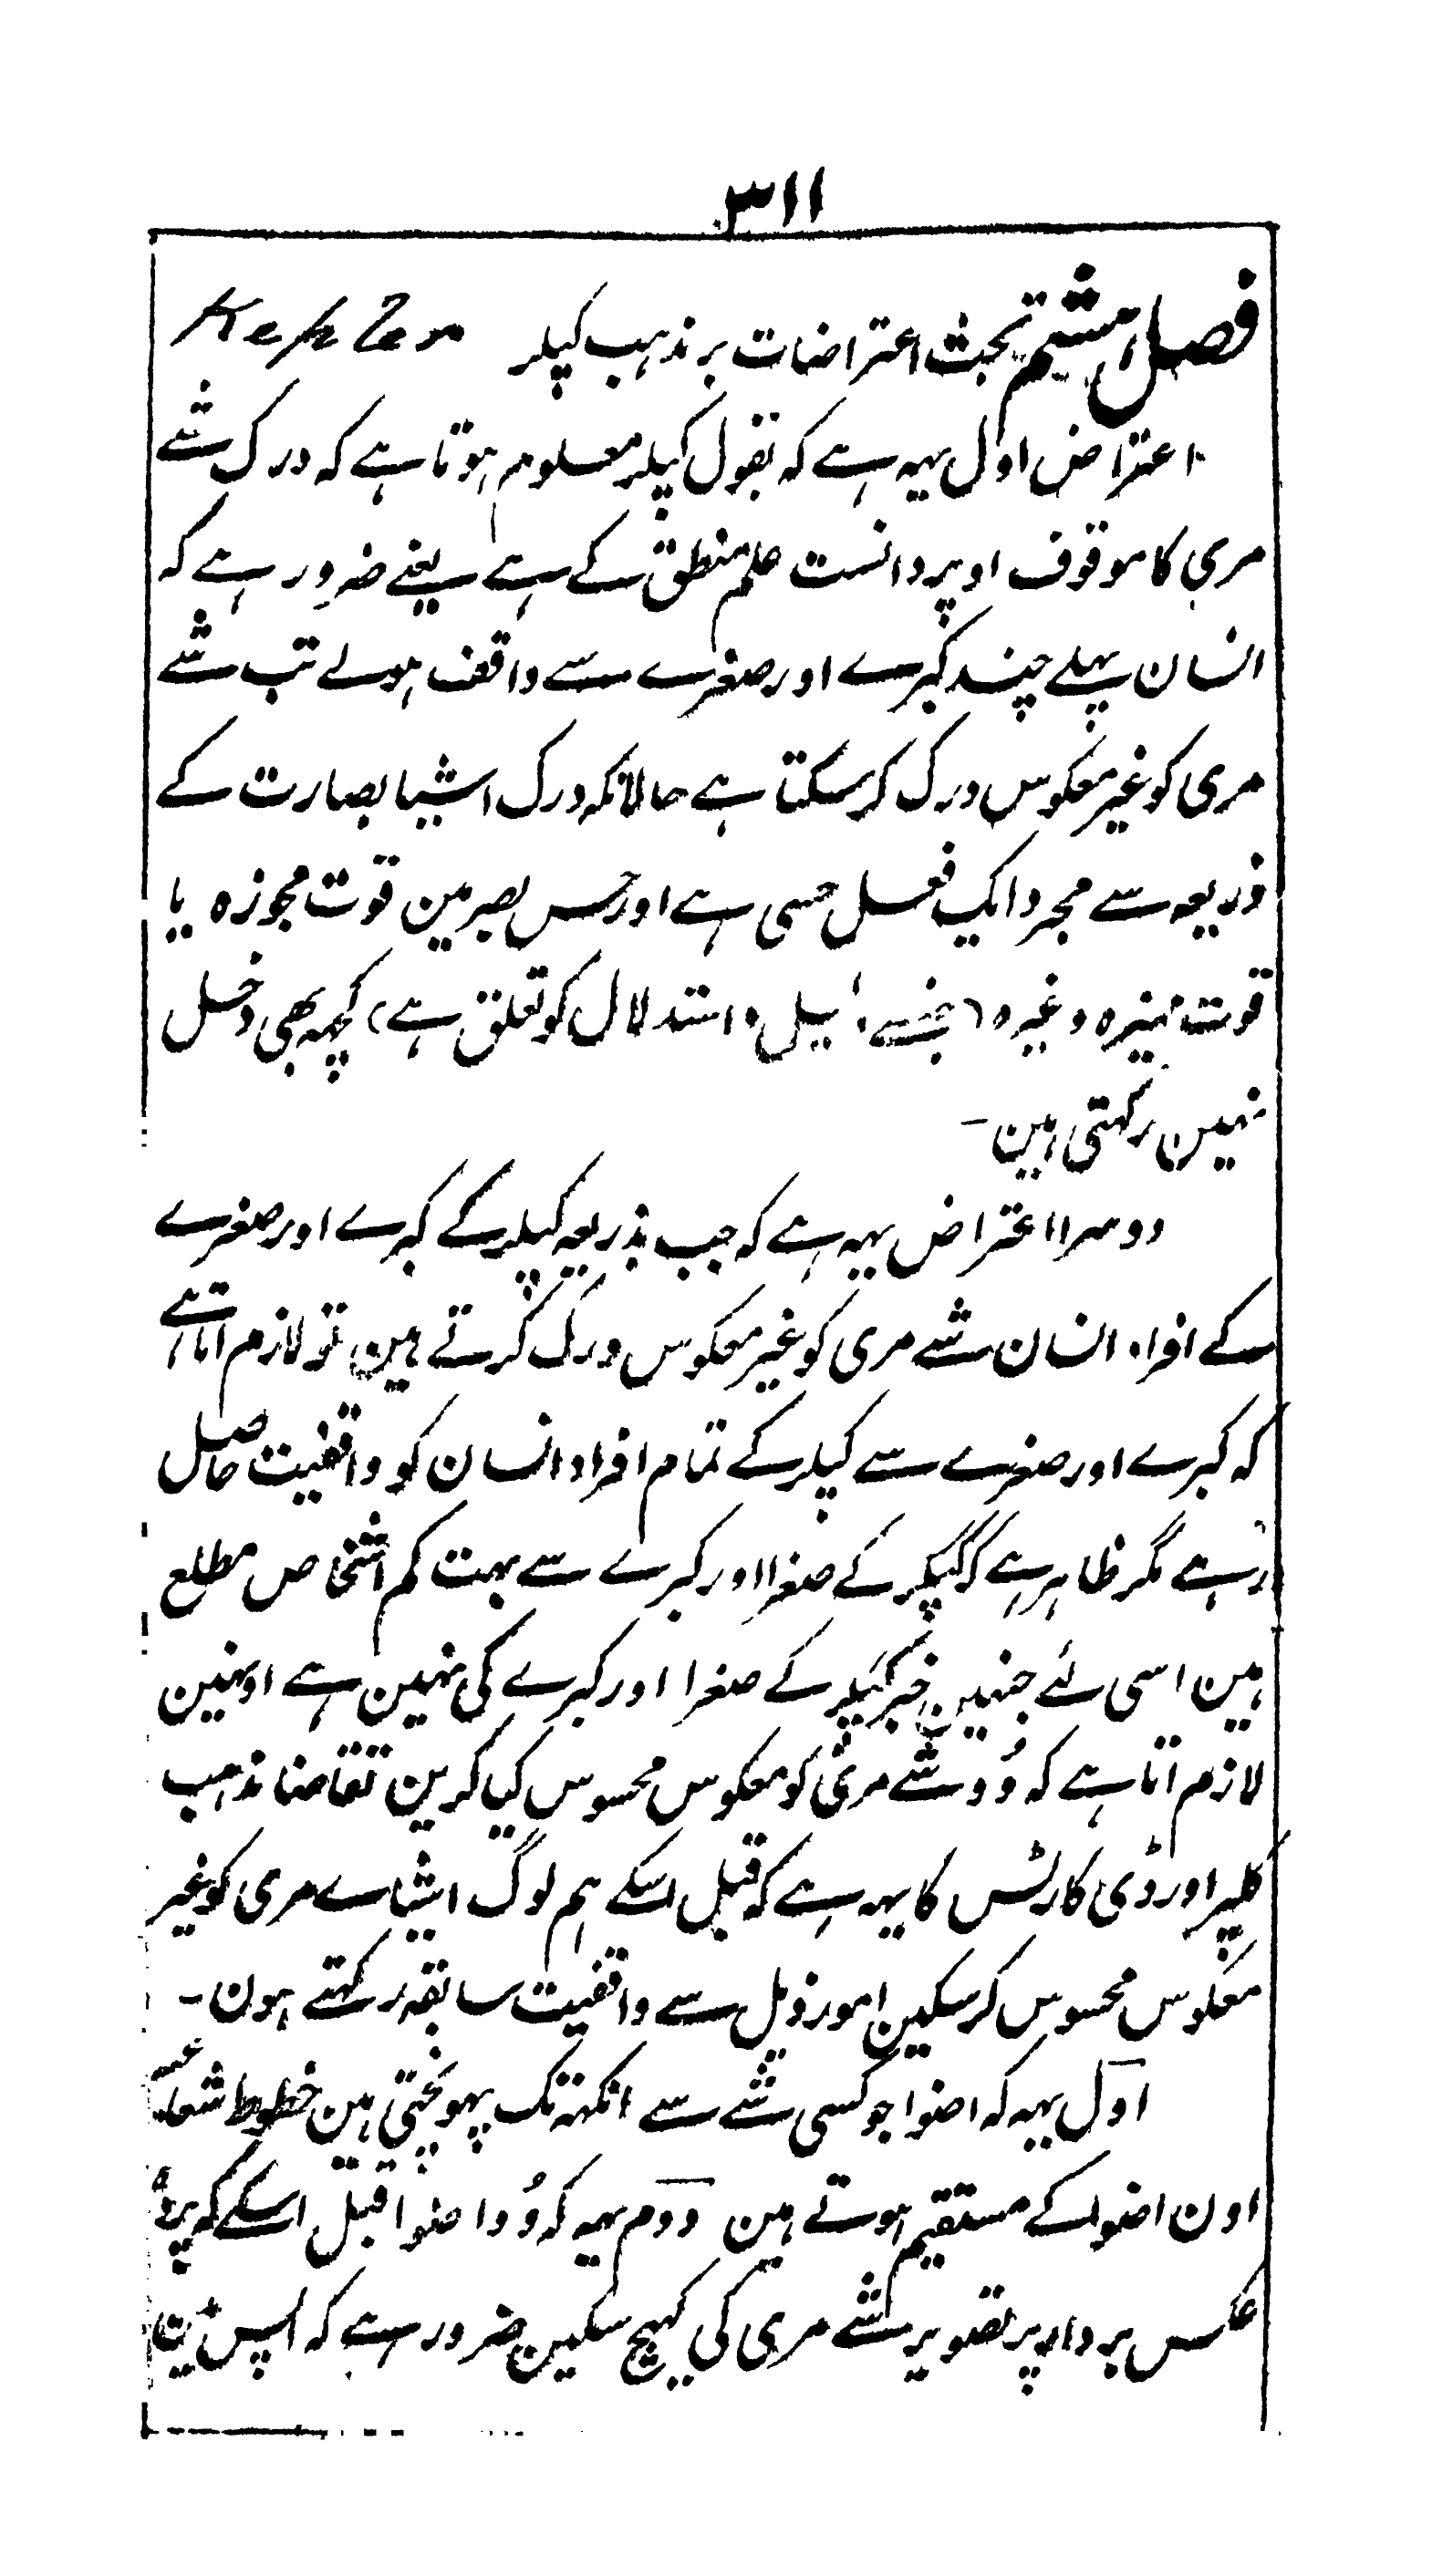 ۳۱۱
فصل ہشتم بحث اعتراضات بر مذہب کپلر Kepler
اعتراض اول یہہ ہے کہ بقول کپلر معلوم ہوتا ہے کہ درک شے
مری کا موقوف اوپر دانست علم منطق کے ہے یعنے ضرور ہے کہ
انسان پہلے چند کبرے اور صغرے سے واقف ہولے تب شے
مری کو غیر معکوس درک کر سکتا ہے حالانکہ درک اشیا بصارت کے
ذریعہ سے مجرد ایک فعل حسی ہے اور حس بصر مین قوت مجوزہ یا
قوت ممیزہ وغیرہ (جنسے دلیل و استدلال کو تعلق ہے) کچہہ بھی دخل
نہین رکہتی ہین -
دوسرا اعتراض یہہ ہے کہ جب بذریعہ کپلر کے کبرے اور صغرے
کے افراد انسان شے مری کو غیر معکوس درک کرتے ہین تو لازم اتا ہے
کہ کبرے اور صغرے سے کپلر کے تمام افراد انسان کو واقفیت حاصل
رہے مگر ظاہر ہے کہ کپلر کے صغرا اور کبرے سے بہت کم اشخاص مطلع
ہین اسی لئے جنہین خبر کپلر کے صغرا اور کبرے کی نہین ہے اونہین
لازم اتا ہے کہ وُہ شے مری کو معکوس محسوس کیا کرین تقاضا مذہب
کلپر اور ڈی کارٹس کا یہہ ہے کہ قبل اسکے ہم لوگ اشیاے مری کو غیر
معکوس محسوس کر سکین امور ذیل سے واقفیت سابقہ رکہتے ہون -
اول یہہ کہ اضوا جو کسی شے سے انکہہ تک پہونچتی ہین خطوط شعاعی
اون اضوا کے مستقیم ہوتے ہین دوم یہہ کہ وُہ اضوا قبل اسکے کہ پردۂ
عکس بردار پر تصویر شے مری کی کہیچ سکین ضرور ہے کہ اپس مین